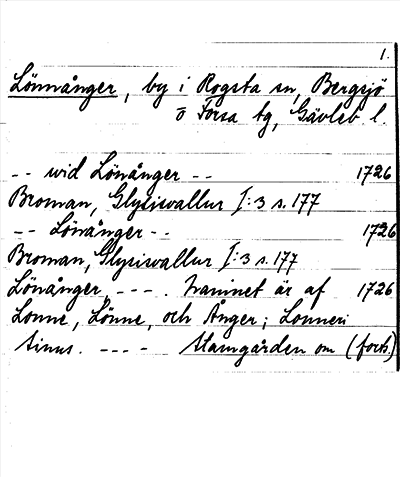 1.
Lönnånger, by i Rogsta sn, Bergsjö
o Forsa tg, Gävleb l.
-- wid Lönånger -- 1726
Broman, Glysisvallur I:3 s. 177
-- Lönånger -- 1726
Broman, Glysisvallur I:3 s. 177
Lönånger, ---. Namnet är af 1726
Lonne, Lönne, och Ånger; Lonneri
sinus. ---- Stamgården om (forts.)